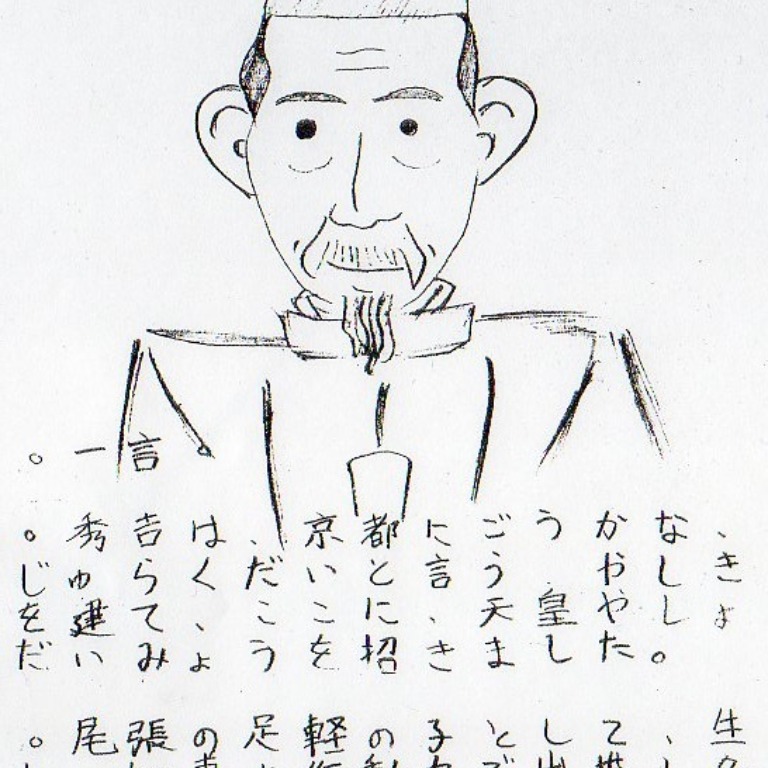 、きょ
なしし。
かややた
う 皇し
ごう天ま
に言、き
都とに招
京いこを
、だこう
、はく、ょ
言吉らてみ
一秀ゆ建い
。。じをだ
生
、
て
し
と
子
の
軽
足
の
張
尾
。